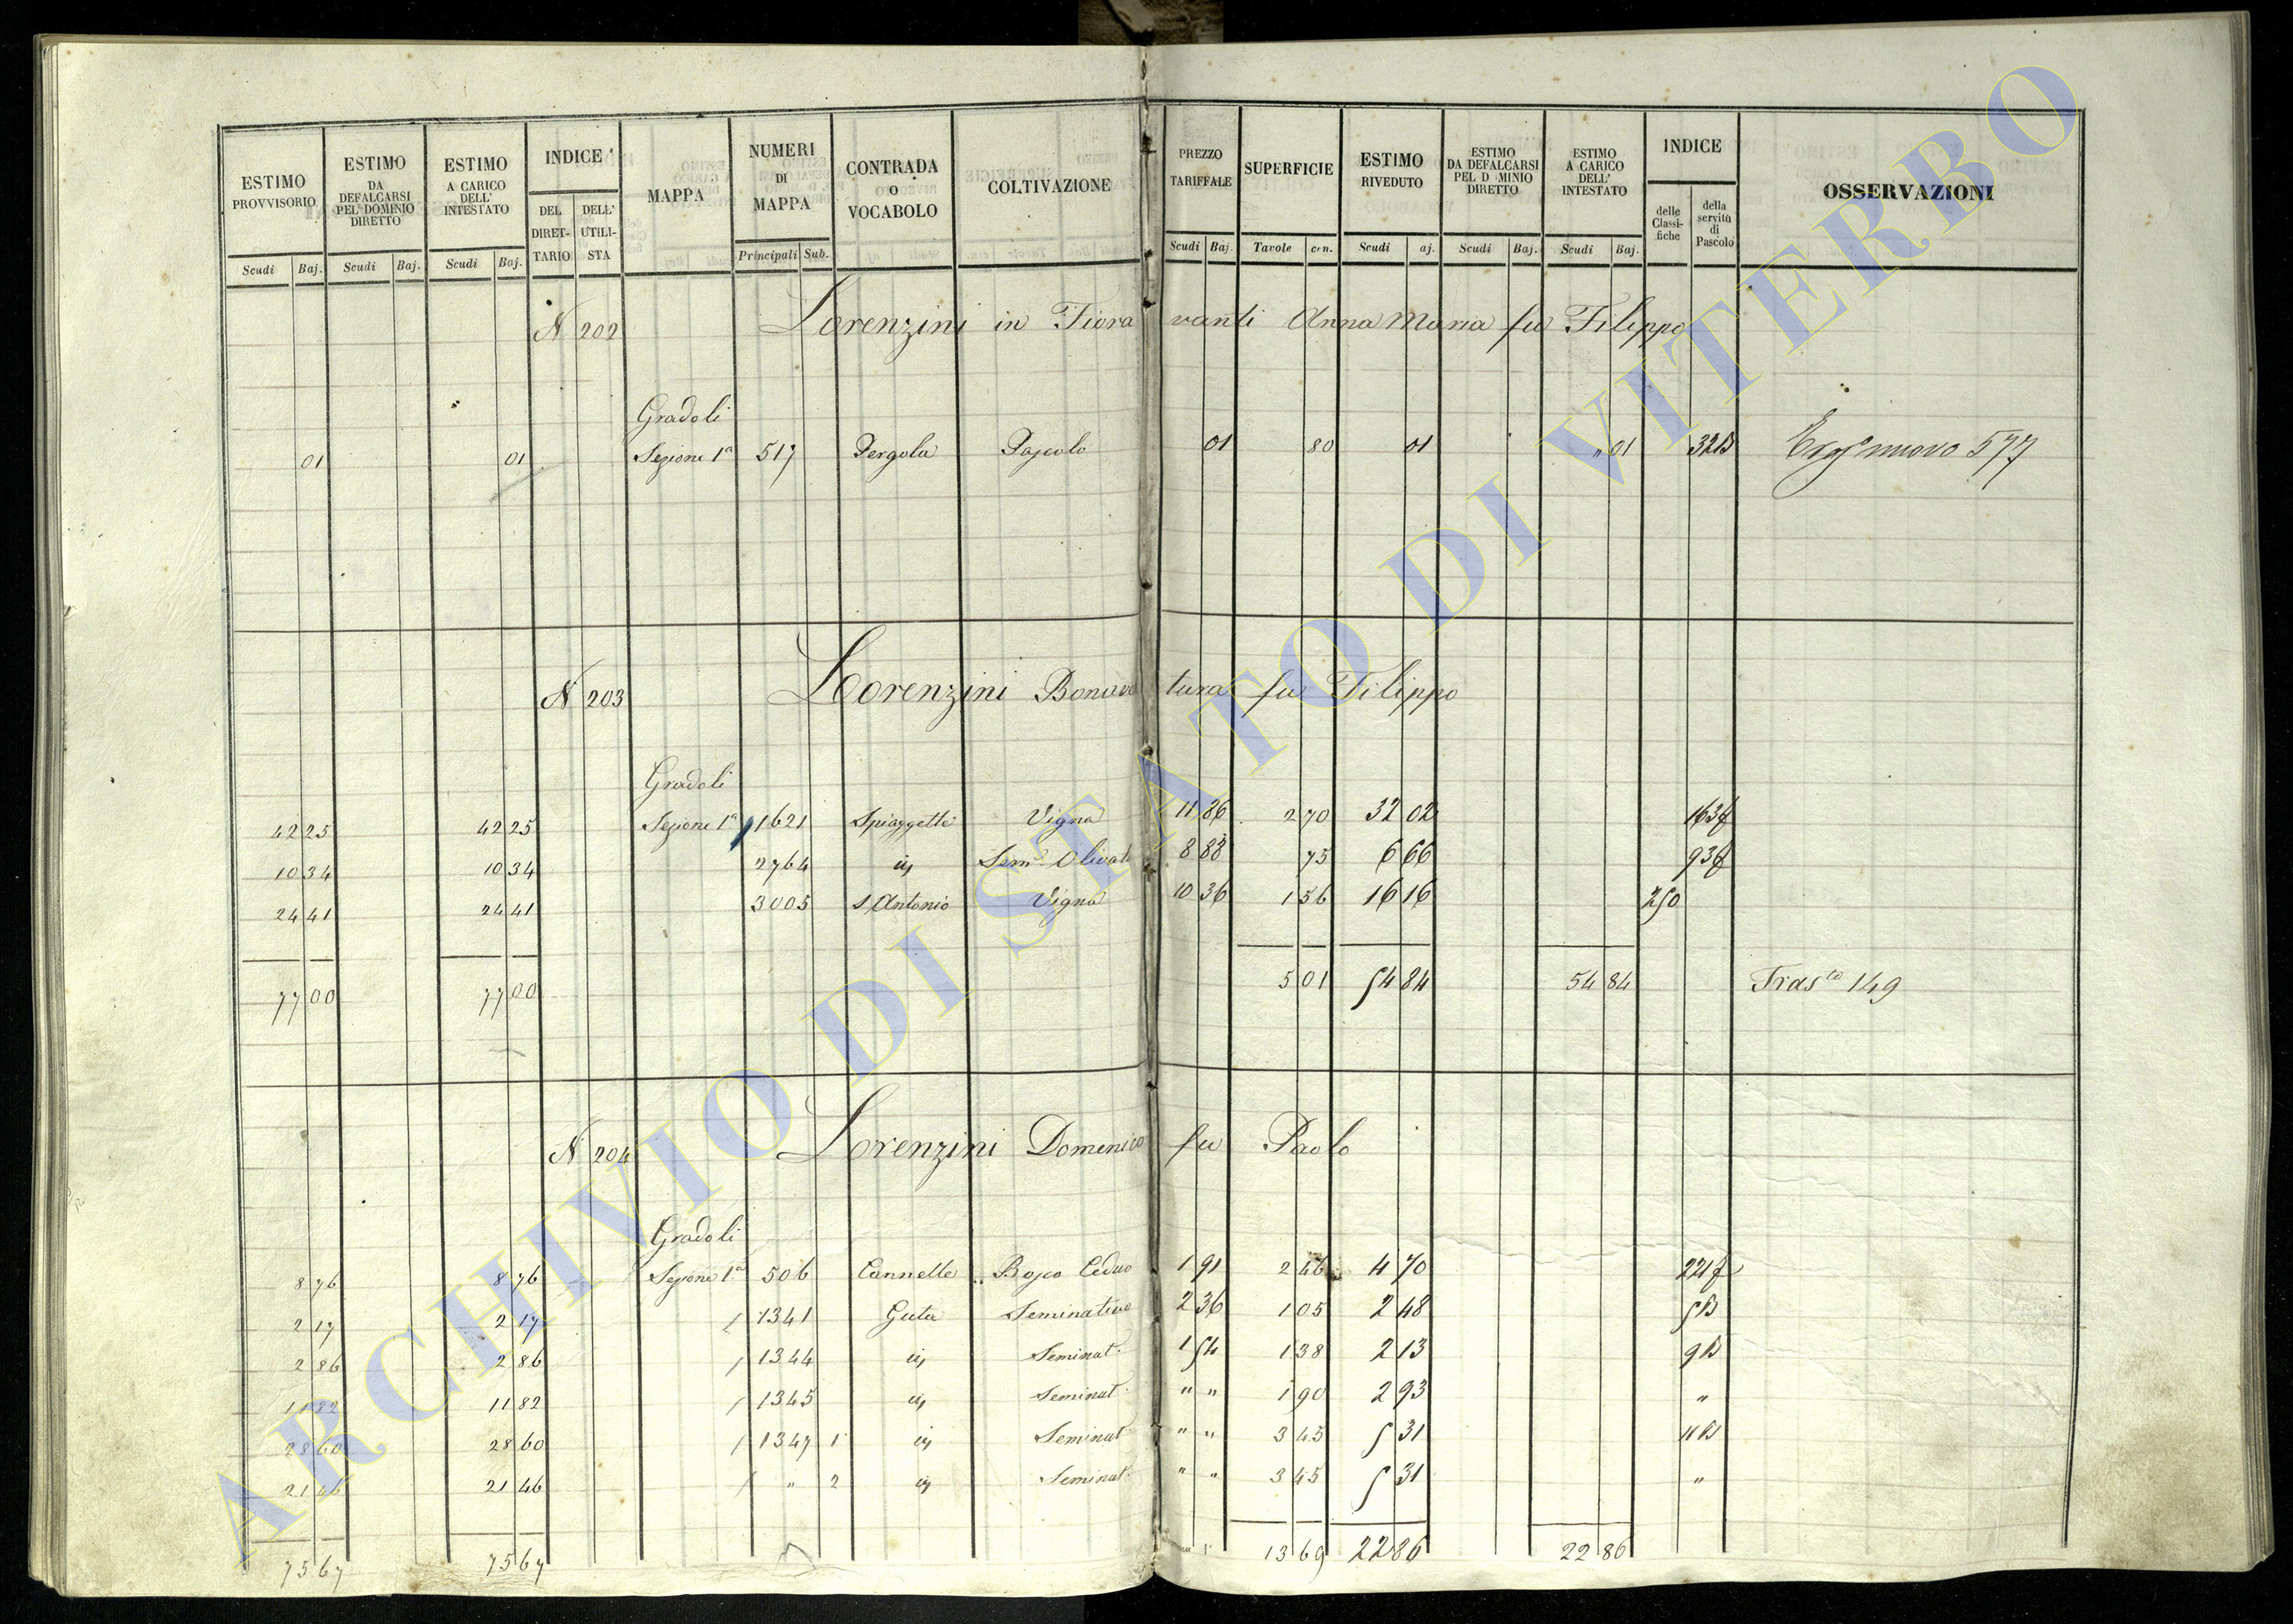 ESTIMO PROVVISORIO ESTIMO DA DEFALCARSI PEL DOMINIO DIRETTO ESTIMO A CARICO DELL' INTESTATO INDICE DEL DIRETTARIO DELL' UTILISTA MAPPA NUMERI DI MAPPA CONTRADA O VOCABOLO COLTIVAZIONE PREZZO TARIFFALE SUPERFICIE ESTIMO RIVEDUTO ESTIMO DA DEFALCARSI PEL D MINIO DIRETTO ESTIMO A CARICO DELL' INTESTATO INDICE delle Classifiche della servitù di Pascolo OSSERVAZIONI
Scudi Baj. Scudi Baj. Scudi Baj. Principali Sub. Scudi Baj. Tavole cen. Scudi aj. Scudi Baj. Scudi Baj.
N 202 Lorenzini in Fioravanti Anna Maria fu Filippo
Gradoli
01 01 Sezione 1a 517 Pergola Pascolo 01 80 01 " 01 32B nuovo 577
N 203 Lorenzini Bonavetura fu Filippo
Gradoli
42 25 42 25 Sezione 1a 1621 Spiaggette Vigna 11 86 2 70 32 02 163f
10 34 10 34 2764 Sem. Olivat 8 88 75 6 66 93f
24 41 24 41 3005 S. Antonio Vigna 10 36 1 56 16 16 250
77 00 77 00 5 01 54 84 54 84 Trasto 149
N 204 Lorenzini Domenico fu Paolo
Gradoli
8 76 8 76 Sezione 1a 506 Cannelle Bosco Ceduo 1 91 2 46 4 70 221f
2 17 2 17 1341 Guta Seminativo 2 36 1 05 2 48 5B
2 86 2 86 1344 Seminat. 1 54 1 38 2 13 9B
11 82 11 82 1345 Seminat. " " 1 90 2 93 "
28 60 28 60 1347 1 Seminat. " " 3 45 5 31 11B
21 46 21 46 " 2 Seminat. " " 3 45 5 31 "
75 67 75 67 13 69 22 86 22 86
ARCHIVIO DI STATO DI VITERBO